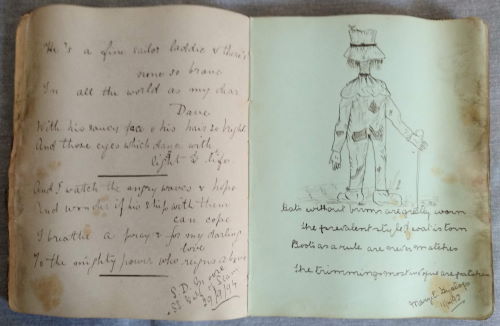 He's a fine sailor laddie & there's
none so brave
In all the world as my dear
Dave
With his saucy face & his hair so bright
And those eyes which dance with
light & life.
And I watch the angry waves & hope
And wonder if his ship with them
can cope
I breathe a prayer for my darling
love
To the mighty power who reigns above
S. D.
Hats without brims are greatly worn
The prevalent style of coat is torn
Boots as a rule are never matches
The trimmings most in vogue are patches
Mary E.